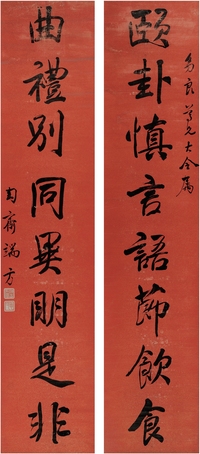 頤卦慎言語節飲食
曲禮別同異明是非
匋齋端方